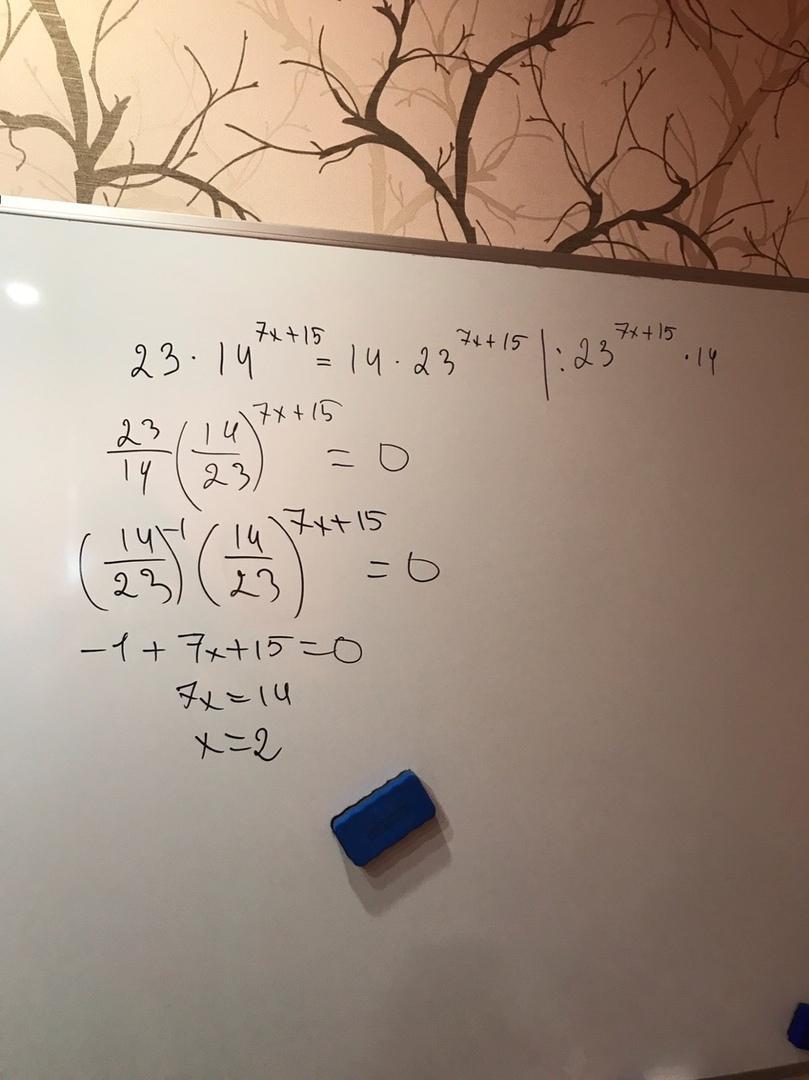 23 · 14^{7x+15} = 14 · 23^{7x+15} | : 23^{7x+15} · 14
\frac{23}{14} (\frac{14}{23})^{7x+15} = 0
(\frac{14}{23})^{-1} (\frac{14}{23})^{7x+15} = 0
-1 + 7x+15 = 0
7x = 14
x = 2